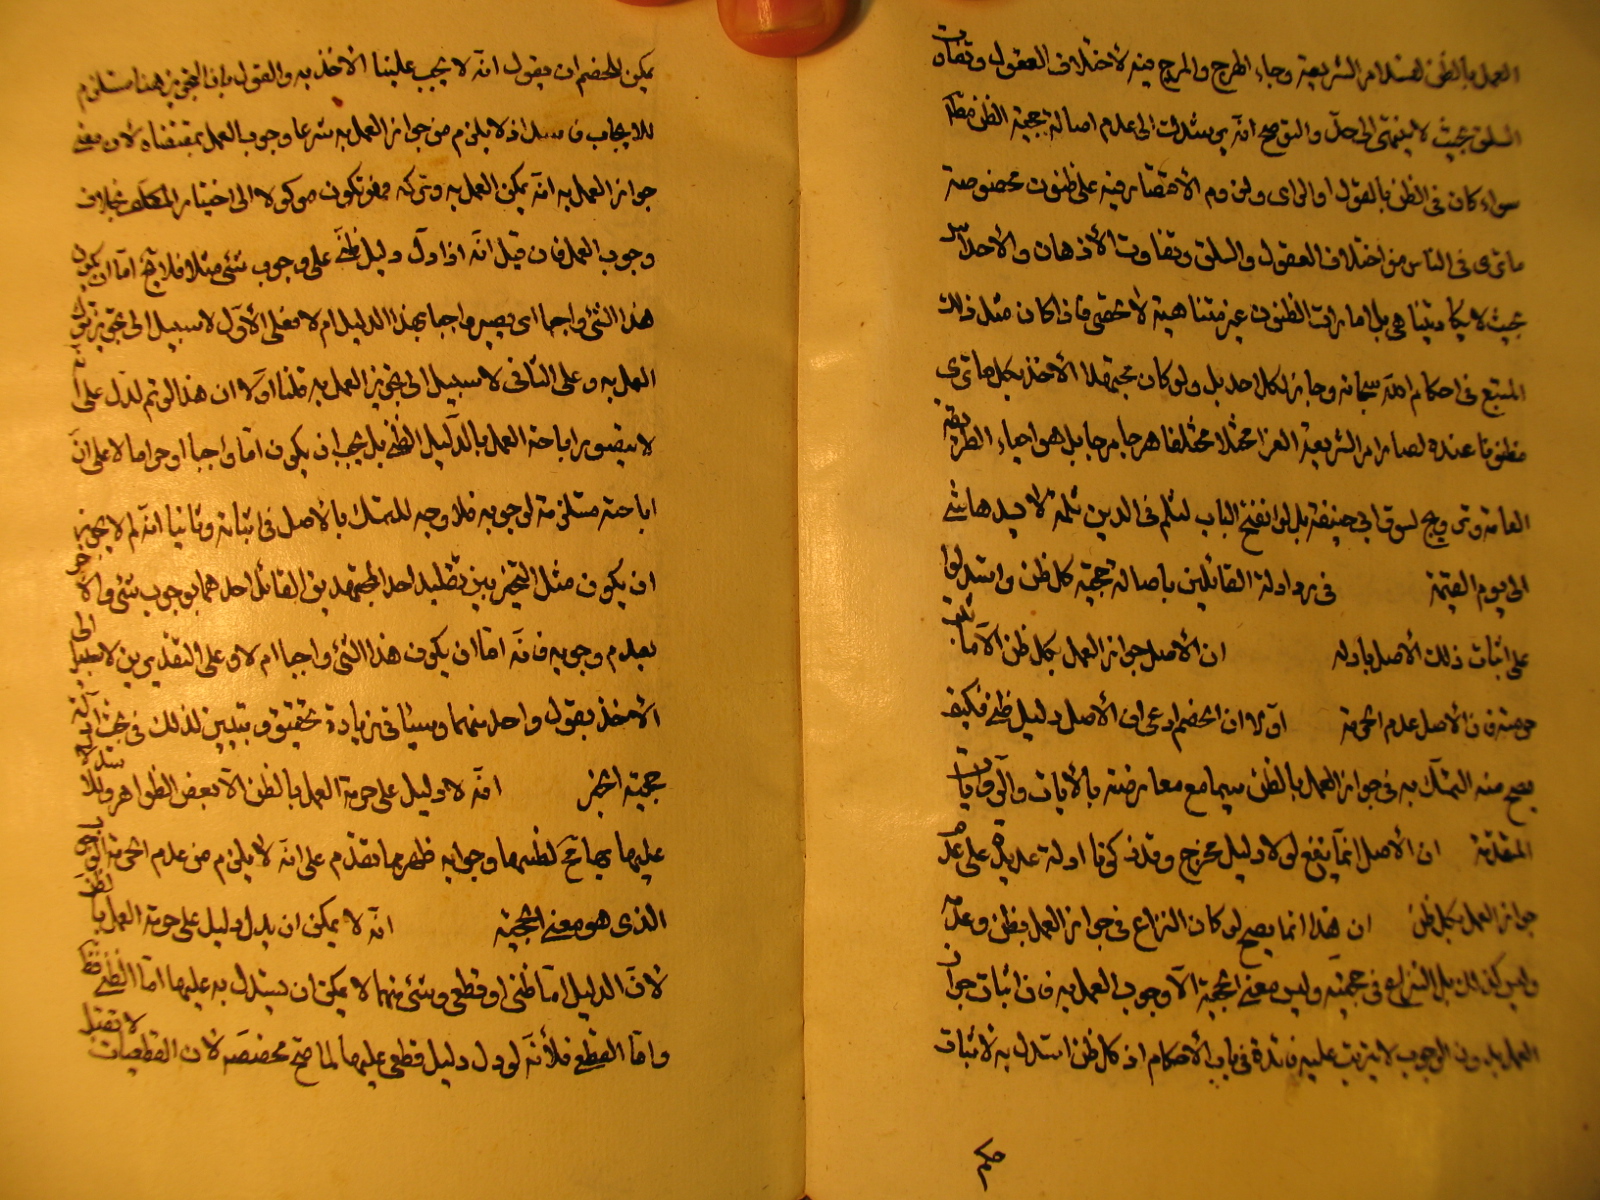 العمل بالظن لفسد امر الشريعة وجاء الهرج والمرج فيه لاختلاف العقول وتفاوت
السلق بحيث لا ينتهى الى حد والتوضيح انه يستدل الى عدم اصالة حجية الظن مطلقا
سواء كان فى الظن بالقول او الراى ولزوم الاقتصار فيه على ظنون مخصوصة
ما ترى فى الناس من اختلاف العقول والسلق وتفاوت الاذهان والاحداس
بحيث لا يكاد يتناهى بل امارات الظنون غير متناهية لا تحصى فاذا كان مثل ذلك
المتبع فى احكام الله سبحانه وجاز لكل احد بل ولو كان مجتهدا الاخذ بكل ما ترى
مظنونا عنده لصار امر الشريعة الغرا مختلا مختلفا هرجا مرجا بل هو احياء الطريقة
العامة وترويج لسوق ابى حنيفة بل لو انفتح الباب لثلم فى الدين ثلمة لا يسدها شئ
الى يوم القيمة فى رد ادلة القائلين باصالة حجية كل ظن واستدلوا
على اثبات ذلك الاصل بادلة ان الاصل جواز العمل بكل ظن الا ما ثبت
حرمته فان الاصل عدم الحرمة اولا ان الخصم ادعى ان الاصل دليل ظنى فكيف
يصح منه التمسك به فى جواز العمل بالظن سيما مع معارضته بالايات والروايات
المتقدمة ان الاصل انما ينفع لولا دليل مخرج وقد ذكرنا ادلة عديدة على عدم
جواز العمل بكل ظن ان هذا انما يصح لو كان النزاع فى جواز العمل بظن وعدمه
وليس كذلك بل النزاع فى حجيته وليس معنى الحجية الا وجوب العمل به فان اثبات جواز
العمل بدون الوجوب لا يترتب عليه فائدة فى باب الاحكام اذ كل ظن استدل به لاثبات
يمكن للخصم ان يقول انه لا يجب علينا الاخذ به والقول بان التجويز هنا مستلزم
للايجاب فاسد اذ لا يلزم من جواز العمل به شرعا وجوب العمل بمقتضاه لان معنى
جواز العمل به انه يمكن العمل به وتركه فهو تكون موكولا الى اختيار المكلف بخلاف
وجوب العمل فان قيل انه اذا دل دليل ظنى على وجوب شئ مثلا فلا يخ اما ان يكون
هذا الشئ واجبا اى يصير واجبا بهذا الدليل ام لا فعلى الاول لا سبيل الى تجويز ترك
العمل به وعلى الثانى لا سبيل الى تجويز العمل به قلنا اولا ان هذا لو تم لدل على انه
لا يتصور اباحة العمل بالدليل الظنى بل يجب ان يكون اما واجبا او حراما لا على ان
اباحته مستلزمة لوجوبه فلا وجه للتمسك بالاصل فى اثباته وثانيا انه لم لا يجوز
ان يكون مثل التخيير بين تقليد احد المجتهدين القائل احدهما بوجوب شئ والاخر
بعدم وجوبه فانه اما ان يكون هذا الشئ واجبا ام لا وعلى التقديرين لا سبيل الى
الاخذ بقول واحد منهما وسياتى زيادة تحقيق وتبيين لذلك فى بحث ادلة
حجية الخبر انه لا دليل على حرمة العمل بالظن الا بعض الظواهر
عليها وجوابه ظهر مما تقدم على انه لا يلزم من عدم الحرمة الوجوب
الذى هو معنى الحجية انه لا يمكن ان يدل دليل على حرمة العمل بالظن
لان الدليل اما ظنى او قطعى وشئ منهما لا يمكن ان يستدل به عليها اما الظنى فظ
واما القطعى فلانه لو دل دليل قطعى عليها لما صح مخصصه لان القطعيات لا تقبل